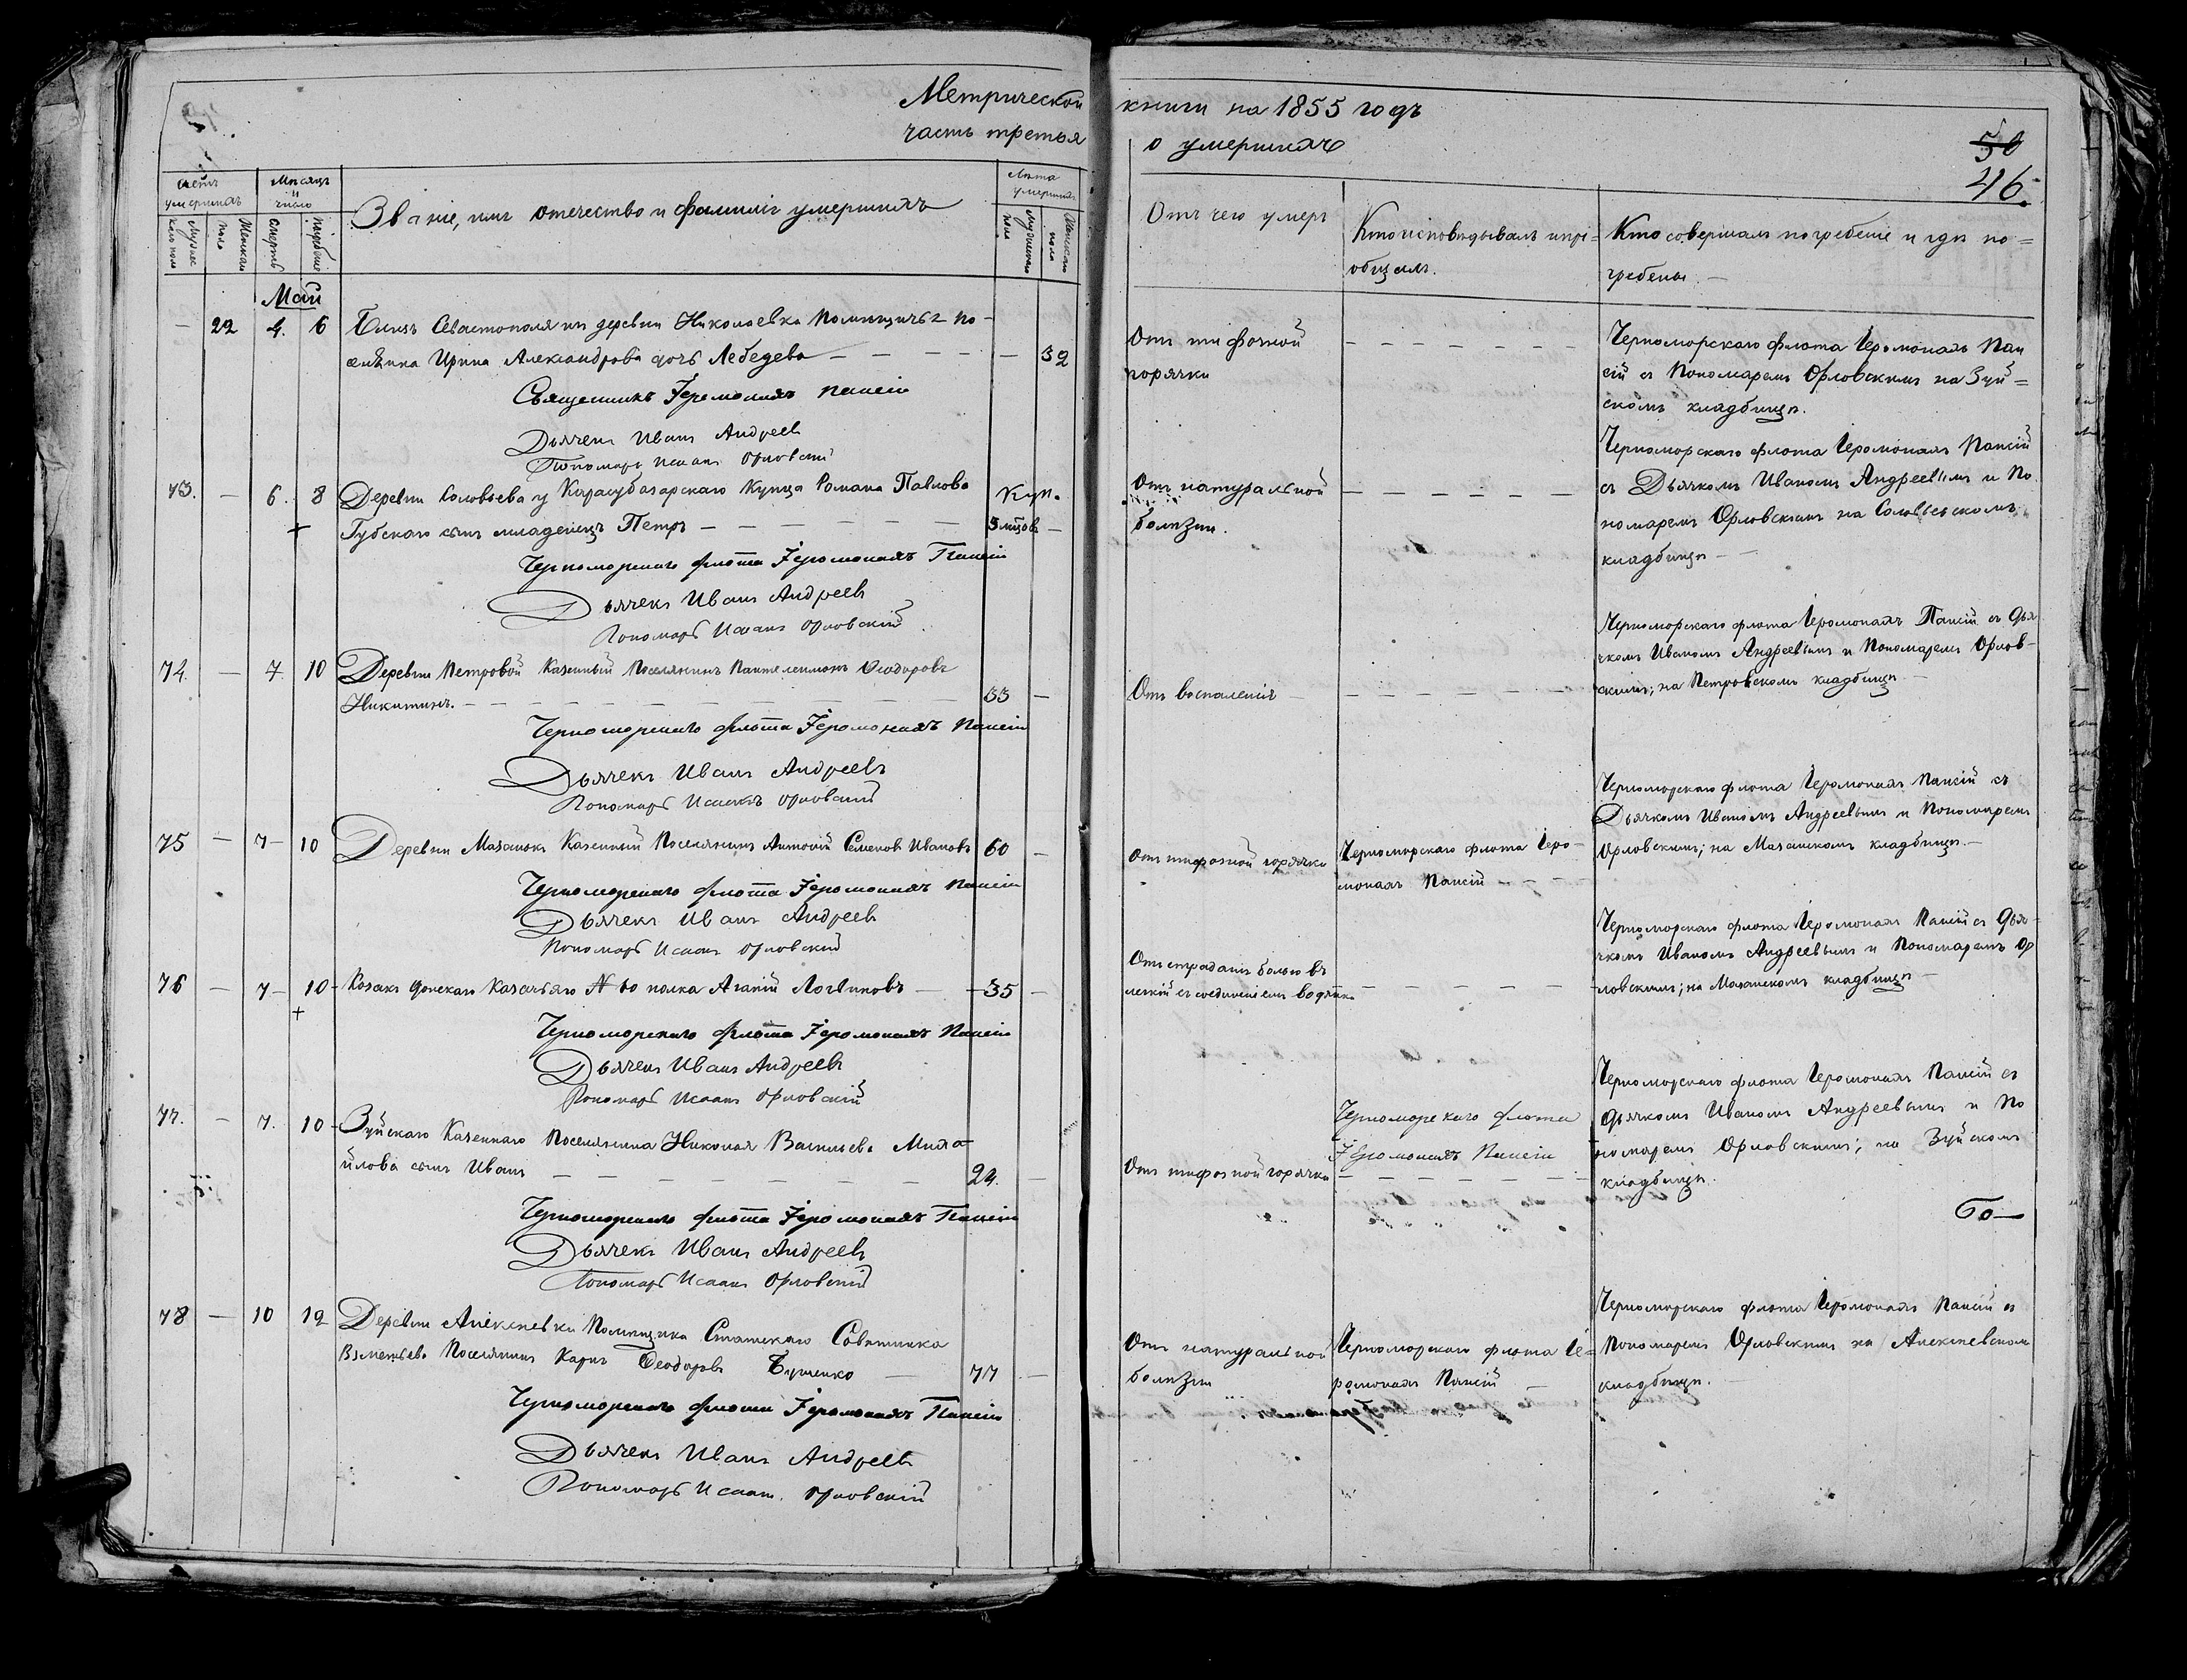 Метрической
часть третья
книги на 1855 годъ
о умершихъ
50
46.
Счетъ умершихъ
Мужескаго пола
Женскаго пола
Мѣсяцъ и число
Смерть
Погребеніе
Званіе, имя отечество и фамилія умершихъ
Лѣта умершихъ
Мужескаго пола
Женскаго пола
Отъ чего умеръ
Кто исповѣдывалъ и прі=
общалъ.
Кто совершалъ погребеніе и гдѣ по=
гребены. —
Май
— 22 4. 6 Близъ Севастополя изъ деревни Николаевка Помѣщичья по-
селянка Ирина Александрова дочь Лебедева — — — — — 32
Священникъ Іеромонахъ Паисій
Дьячекъ Иванъ Андреевъ
Пономарь Исаакъ Орловскій
Отъ тифозной
горячки
— — — — — — —
Черноморскаго флота Іеромонахъ Паи
сій съ Пономаремъ Орловскимъ на Зуй=
скомъ кладбищѣ.
73. — 6. 8 Деревни Соловьева у Карасубазарскаго Купца Романа Павлова
Губскаго сынъ младенецъ Петръ — — — — — — 5 мѣцов —
Черноморскаго флота Іеромонахъ Паисій
Дьячекъ Иванъ Андреевъ
Пономарь Исаакъ Орловскій
Отъ натуральной
болѣзни.
— — — — — —
Черноморскаго флота Іеромонахъ Паисій
съ Дьячкомъ Иваномъ Андреевымъ и По
номаремъ Орловскимъ на Соловьевскомъ
кладбищѣ — —
74. — 7. 10 Деревни Петровой Казенный Поселянинъ Пантелеимонъ Ѳеодоровъ
Никитинъ. — — — — — — — — — 33 —
Черноморскаго флота Іеромонахъ Паисій
Дьячекъ Иванъ Андреевъ
Пономарь Исаакъ Орловскій
Отъ воспаленія
— — — — — —
Черноморскаго флота Іеромонахъ Паисій съ Дья
чкомъ Иваномъ Андреевымъ и Пономаремъ Орлов-
скимъ; на Петровскомъ кладбищѣ —
75 — 7 — 10 Деревни Мазанокъ Казенный Поселянинъ Антоній Семеновъ Ивановъ 60 —
Черноморскаго флота Іеромонахъ Паисій
Дьячекъ Иванъ Андреевъ
Пономарь Исаакъ Орловскій
Отъ тифозной горячки
Черноморскаго флота Іеро-
монахъ Паисій — — —
Черноморскаго флота Іеромонахъ Паисій съ
Дьячкомъ Иваномъ Андреевымъ и Пономаремъ
Орловскимъ; на Мазанскомъ кладбищѣ. —
76 — 7 — 10 — Козакъ Донскаго Казачьяго полка Ананій Логвиновъ — 35 —
Черноморскаго флота Іеромонахъ Паисій
Дьячекъ Иванъ Андреевъ
Пономарь Исаакъ Орловскій
Отъ страданія болью въ
легкій съ соединеніемъ водянки
— — — — — —
Черноморскаго флота Іеромонахъ Паисій съ Дья-
чкомъ Иваномъ Андреевымъ и Пономаремъ Ор
ловскимъ; на Мазанскомъ кладбищѣ —
77. — 7. 10 — Зуйскаго Казеннаго Поселянина Николая Васильева Миха-
йлова сынъ Иванъ — — — — — — — 24. —
Черноморскаго флота Іеромонахъ Паисій
Дьячекъ Иванъ Андреевъ
Пономарь Исаакъ Орловскій
Отъ тифозной горячки
Черноморскаго флота
Іеромонахъ Паисій
— — — — — —
Черноморскаго флота Іеромонахъ Паисій съ
дьячкомъ Иваномъ Андреевымъ и По
номаремъ Орловскимъ; на Зуйскомъ
кладбищѣ.
78 — 10 12 Деревни Алексѣевки Помѣщика Статскаго Совѣтника
Поселянинъ Карпъ Ѳеодоровъ Бутенко — 77 —
Черноморскаго флота Іеромонахъ Паисій
Дьячекъ Иванъ Андреевъ
Пономарь Исаакъ Орловскій
Отъ натуральной
болѣзни
Черноморскаго флота Іе=
ромонахъ Паисій —
Черноморскаго флота Іеромонахъ Паисій съ
Пономаремъ Орловскимъ на Алексѣевскомъ
кладбищѣ. —